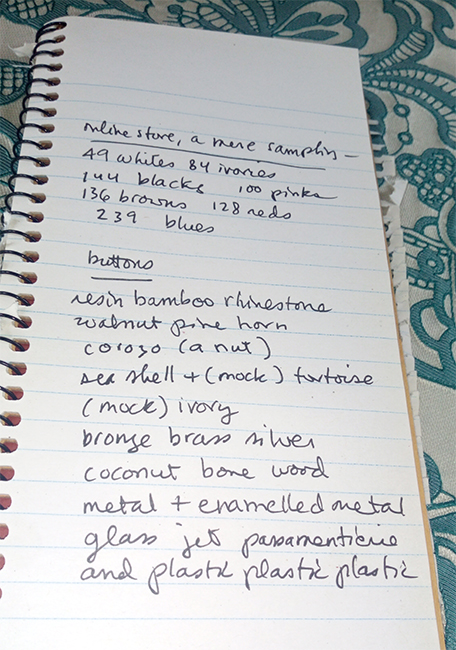 online store, a mere sampling —
49 whites 84 ivories
144 blacks 100 pinks
136 browns 128 reds
239 blues
buttons
resin bamboo rhinestone
walnut pine horn
corozo (a nut)
sea shell + (mock) tortoise
(mock) ivory
bronze brass silver
coconut bone wood
metal + enamelled metal
glass jet passamenterie
and plastic plastic plastic